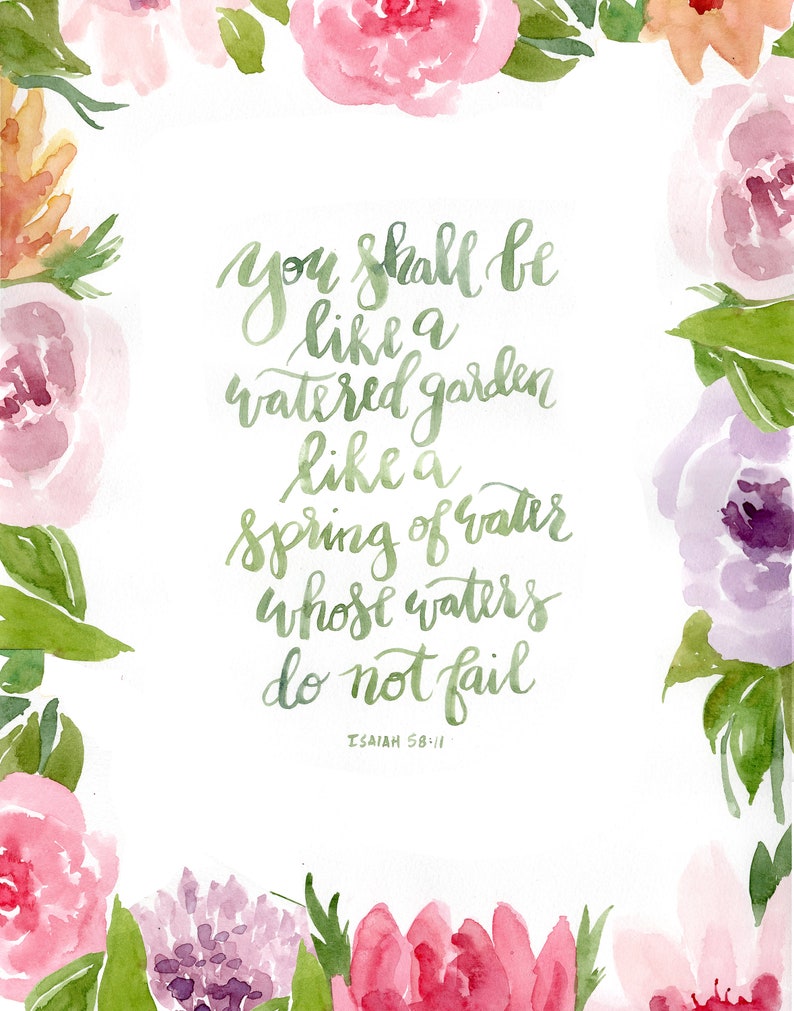 you shall be
like a
watered garden
like a
spring of water
whose waters
do not fail
ISAIAH 58:11